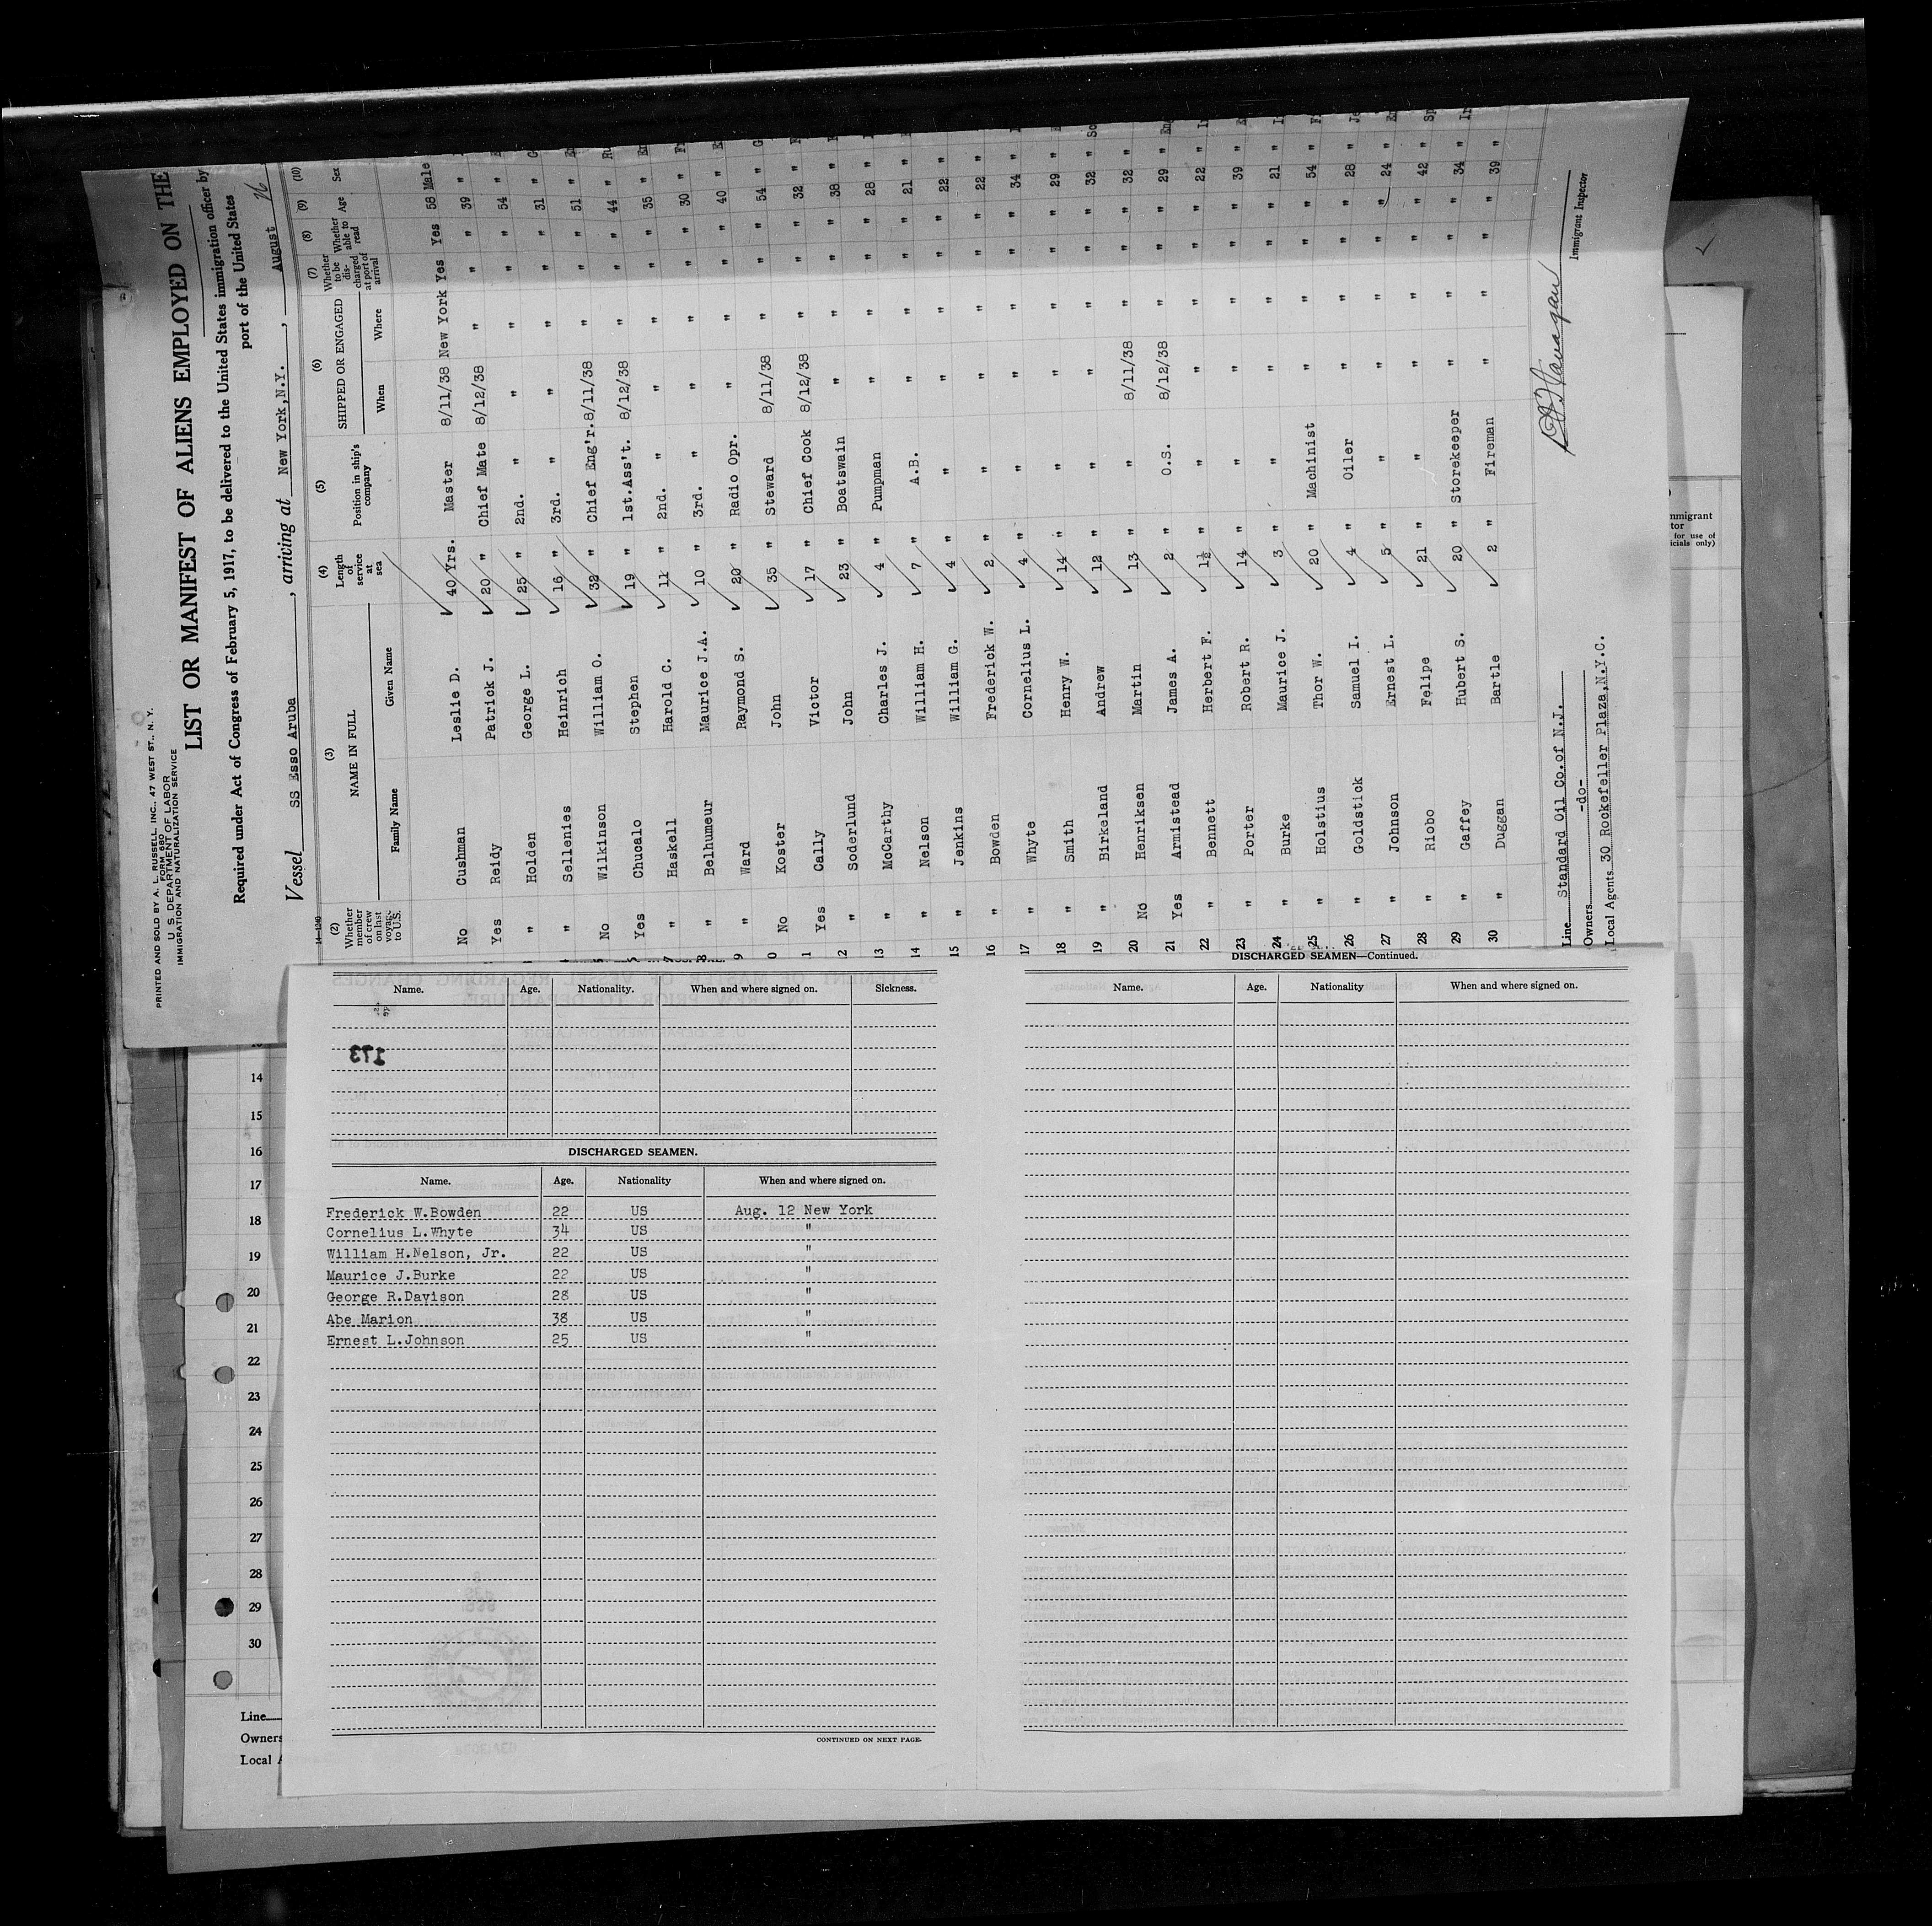 PRINTED AND SOLD BY A. L. RUSSELL, INC., 47 WEST ST., N. Y.
FORM 680
U. S. DEPARTMENT OF LABOR
IMMIGRATION AND NATURALIZATION SERVICE
LIST OR MANIFEST OF ALIENS EMPLOYED ON THE
Required under Act of Congress of February 5, 1917, to be delivered to the United States immigration officer by
port of the United States
Vessel SS Esso Aruba, arriving at New York,N.Y., August
14-1240
(2) (3) (4) (5) (6) (7) (8) (9) (10)
Whether member of crew on last voyage to U.S. NAME IN FULL Length of service at sea Position in ship's company SHIPPED OR ENGAGED Whether to be discharged at port of arrival Whether able to read Age Sex
Family Name Given Name When Where
No Cushman Leslie D. 40 Yrs. Master 8/11/38 New York Yes Yes 58 Male
Yes Reidy Patrick J. 20 " Chief Mate 8/12/38 " " " 39 "
" Holden George L. 25 " 2nd. " " " " " 54 "
" Sellenies Heinrich 16 " 3rd. " " " " " 31 "
No Wilkinson William O. 32 " Chief Eng'r. 8/11/38 " " " 51 "
Yes Chucalo Stephen 19 " 1st.Ass't. 8/12/38 " " " 44 "
" Haskell Harold C. 11 " 2nd. " " " " " 35 "
" Belhumeur Maurice J.A. 10 " 3rd. " " " " " 30 "
9 " Ward Raymond S. 20 " Radio Opr. " " " " 40 "
0 No Koster John 35 " Steward 8/11/38 " " " 54 "
1 Yes Cally Victor 17 " Chief Cook 8/12/38 " " " 32 "
2 " Soderlund John 23 " Boatswain " " " " 38 "
13 " McCarthy Charles J. 4 " Pumpman " " " " 28 "
14 " Nelson William H. 7 " A.B. " " " " 21 "
15 " Jenkins William G. 4 " " " " " " 22 "
16 " Bowden Frederick W. 2 " " " " " " 22 "
17 " Whyte Cornelius L. 4 " " " " " " 34 "
18 " Smith Henry W. 14 " " " " " " 29 "
19 " Birkeland Andrew 12 " " " " " " 32 "
20 No Henriksen Martin 13 " " 8/11/38 " " " 32 "
21 Yes Armistead James A. 2 " O.S. 8/12/38 " " " 29 "
22 " Bennett Herbert F. 1½ " " " " " " 22 "
23 " Porter Robert R. 14 " " " " " " 39 "
24 " Burke Maurice J. 3 " " " " " " 21 "
25 " Holstius Thor W. 20 " Machinist " " " " 54 "
26 " Goldstick Samuel I. 4 " Oiler " " " " 28 "
27 " Johnson Ernest L. 5 " " " " " " 24 "
28 " Riobo Felipe 21 " " " " " " 42 "
29 " Gaffey Hubert S. 20 " Storekeeper " " " " 34 "
30 " Duggan Bartle 2 " Fireman " " " " 39 "
Line Standard Oil Co.of N.J.
Owners -do-
Local Agents 30 Rockefeller Plaza,N.Y.C.
Immigrant Inspector
Name. Age. Nationality. When and where signed on. Sickness.
173
DISCHARGED SEAMEN.
Name. Age. Nationality When and where signed on.
Frederick W.Bowden 22 US Aug. 12 New York
Cornelius L.Whyte 34 US "
William H.Nelson, Jr. 22 US "
Maurice J.Burke 22 US "
George R.Davison 28 US "
Abe Marion 38 US "
Ernest L.Johnson 25 US "
CONTINUED ON NEXT PAGE.
DISCHARGED SEAMEN—Continued.
Name. Age. Nationality When and where signed on.
14
15
16
17
18
19
20
21
22
23
24
25
26
27
28
29
30
Line
Owners
Local